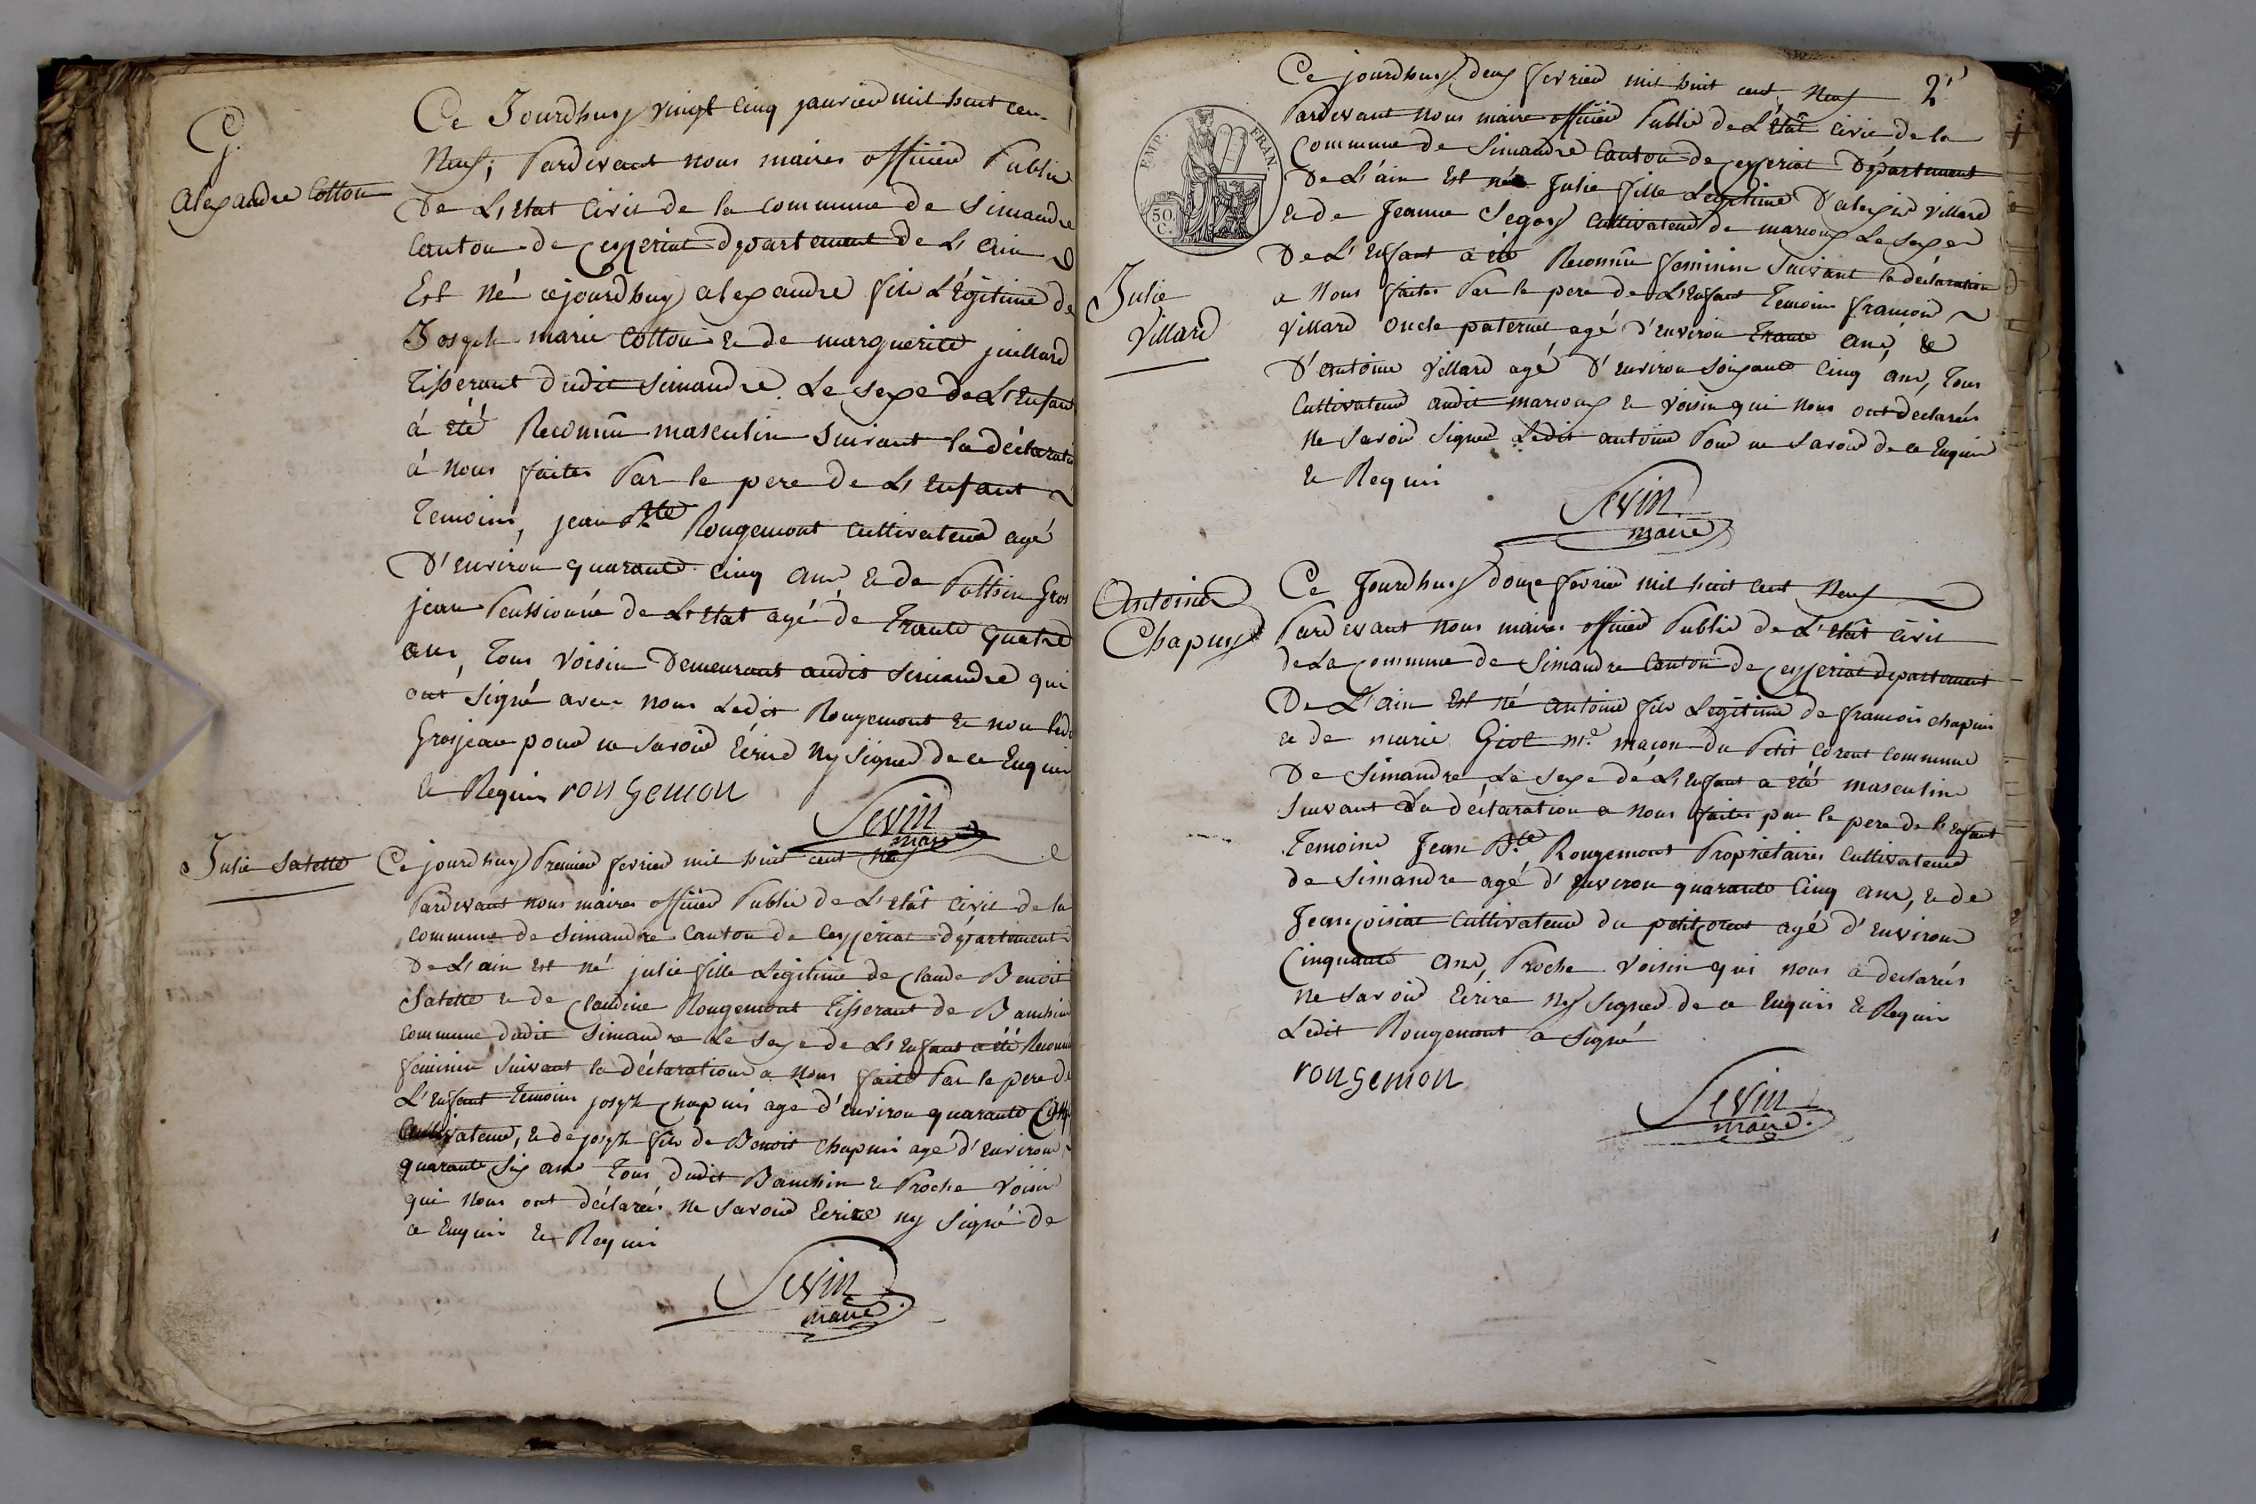 G.
alexandre Cotton
Ce Jourdhuy vingt Cinq janvier mil huit cen
Neuf; Pardevant nous maires officier Public
De L'Etat Civil de la commune de Simandre
Canton de Ceyzeriat departement de L'ain
Est né cejourdhuy alexandre fils Légitime de
Joseph marie Cotton & de marguerite juillard
Tisserant dudit Simandre. Le sexe de L'Enfant
á été Reconnu masculin Suivant la déclaratio
à nous faites Par le pere de L'Enfant
Temoins, jean Bte Rougemont Cultivateur agé
D'Environ quarante Cinq ans & de Gros
jean Penssionné de L'Etat agé de Trante quatre
ans, Tous Voisin Demeurant audit Simandre qui
ont signé avec nous Ledit Rougemont & non led
Grosjean pour ne savoir Ecrire Ny Signer de ce Enquis
& Requis rongemon
Sevin
maire
Julie Satette
Ce jourdhuy Premier fevrier mil huit cent neuf
Pardevant nous maires officier Public de L'Etât Civil de la
commune de Simandre Canton de Ceyzeriat département
De L'ain est né julie fille Légitime de Claude Benoit
Satette & de Claudine Rougemont Tisserant de Banchin
commune dudit Simandre Le sexe de L'Enfant a été Reconnu
feminin Suivant la déclaration a nous faite Par le pere de
L'Enfant Temoins joseph Chapuis age d'Environ quarante Cinq
Cultivateur, & de joseph fils de Benoit Chapuis agé d'Environ
quarante Six ans Tous dudit Banchin & Proche Voisin
qui nous ont déclarés ne Savoir Ecrire ny Signé de
ce Enquis & Requis
Sevin
maire
2
EMP. FRAN.
50 C.
Julie
Villard
Ce jourdhuy deux fevrier mil huit cent Neuf
Pardevant nous maire officier Public de L'Etât Civil de la
Commune de Simandre Canton de Ceyzeriat Département
De L'ain Est née Julie fille Legitime D'alexis Villard
& de Jeanne Segoy Cultivateur de marcoux Le sexe
De L'Enfant a été Reconnu feminin Suivant la déclaration
a nous faites Par le pere de L'Enfant Temoins francois
Villard oncle paternel agé d'Environ Trante ans, &
D'antoine Villard agé D'Environ Soixante Cinq ans, Tous
Cultivateur audit marcoux & voisin qui nous ont declarés
ne Savoir Signer Ledit antoine Pour ne Savoir de ce Enquis
& Requis
Sevin
maire
Antoine
Chapuy
Ce Jourdhuy douze fevrier mil huit cent Neuf
Pardevant nous maires officier Public de L'Etât Civil
de La Commune de Simandre Canton de Ceyzeriat departement
De L'ain Est né antoine fils Légitime de francois chapuis
& de marie Giot me maçon du Petit Corent commune
De Simandre Le sexe de L'Enfant a été masculin
Suivant La déclaration a nous faites par le pere de l'Enfant
Temoins Jean Bte Rougemont Propriétaires Cultivateur
de Simandre agé d'Environ quarante Cinq ans, & de
Jean joisiat Cultivateur du petit Corent agé d'Environ
Cinquante ans, Proche Voisin qui nous a declarés
ne Savoir Ecrire Ny Signer de ce Enquis & Requis
Ledit Rougemont a Signé
rongemon
Sevin
maire.